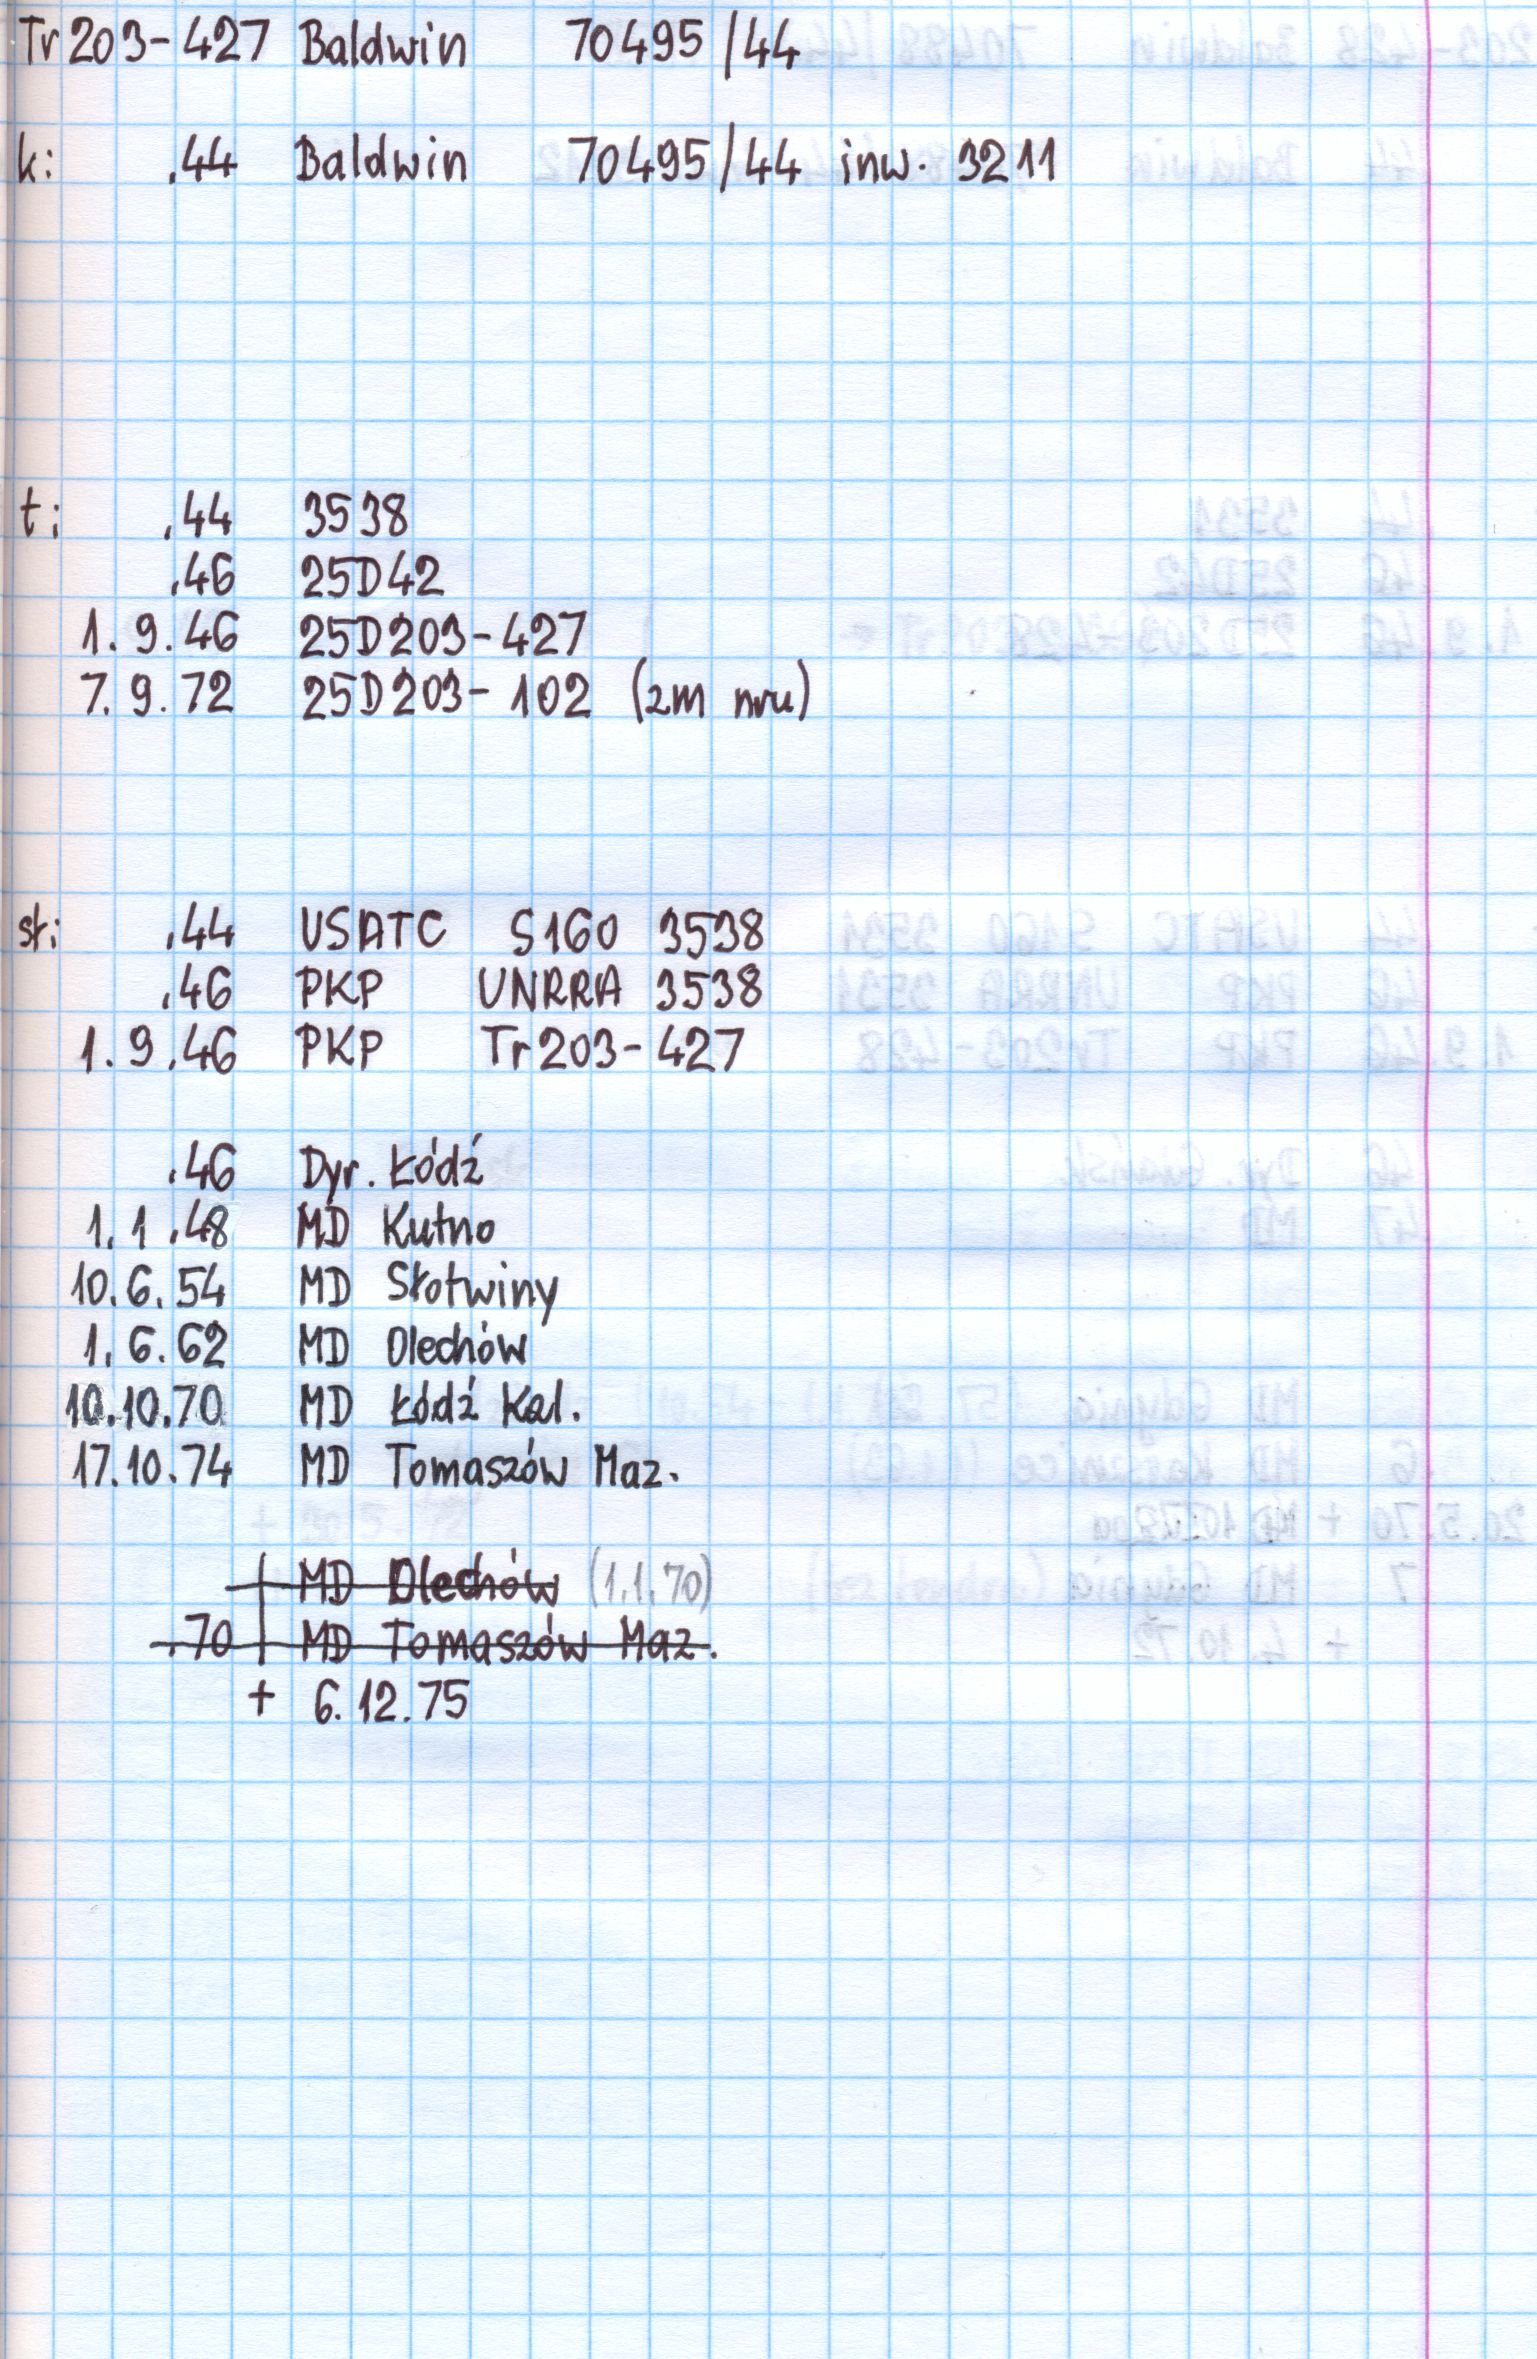 Tr203-427 Baldwin 70495/44
k: .44 Baldwin 70495/44 inw. 3211
t: .44 3538
.46 25D42
1.9.46 25D203-427
7.9.72 25D203-102 (zm nru)
st: .44 USATC S160 3538
.46 PKP UNRRA 3538
1.9.46 PKP Tr203-427
.46 Dyr. Łódź
1.1.48 MD Kutno
10.6.54 MD Słotwiny
1.6.62 MD Olechów
10.10.70 MD Łódź Kal.
17.10.74 MD Tomaszów Maz.
MD Olechów (1.1.70)
.70 MD Tomaszów Maz.
+ 6.12.75